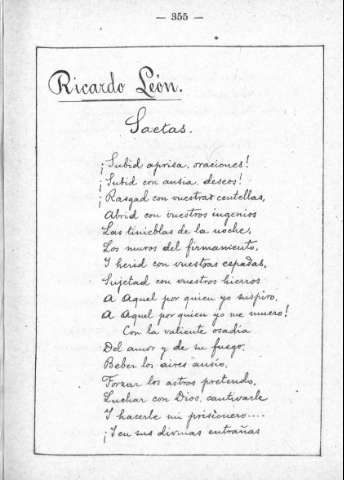 — 355 —
Ricardo León.
Saetas.
¡Subid aprisa, oraciones!
¡Subid con ansia, deseos!
¡Rasgad con vuestras centellas,
Abrid con vuestros ingenios
Las tinieblas de la noche,
Los muros del firmamento,
Y herid con vuestras espadas,
Sujetad con vuestros hierros
A Aquel por quien yo suspiro,
A Aquel por quien yo me muero!
Con la valiente osadía
Del amor y de su fuego,
Beber los aires ansío,
Forzar los astros pretendo,
Luchar con Dios, cautivarle
Y hacerle mi prisionero....
¡Y en sus divinas entrañas